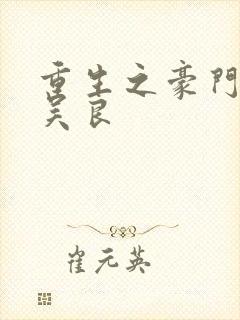 重生之豪門
吴良
崔元英